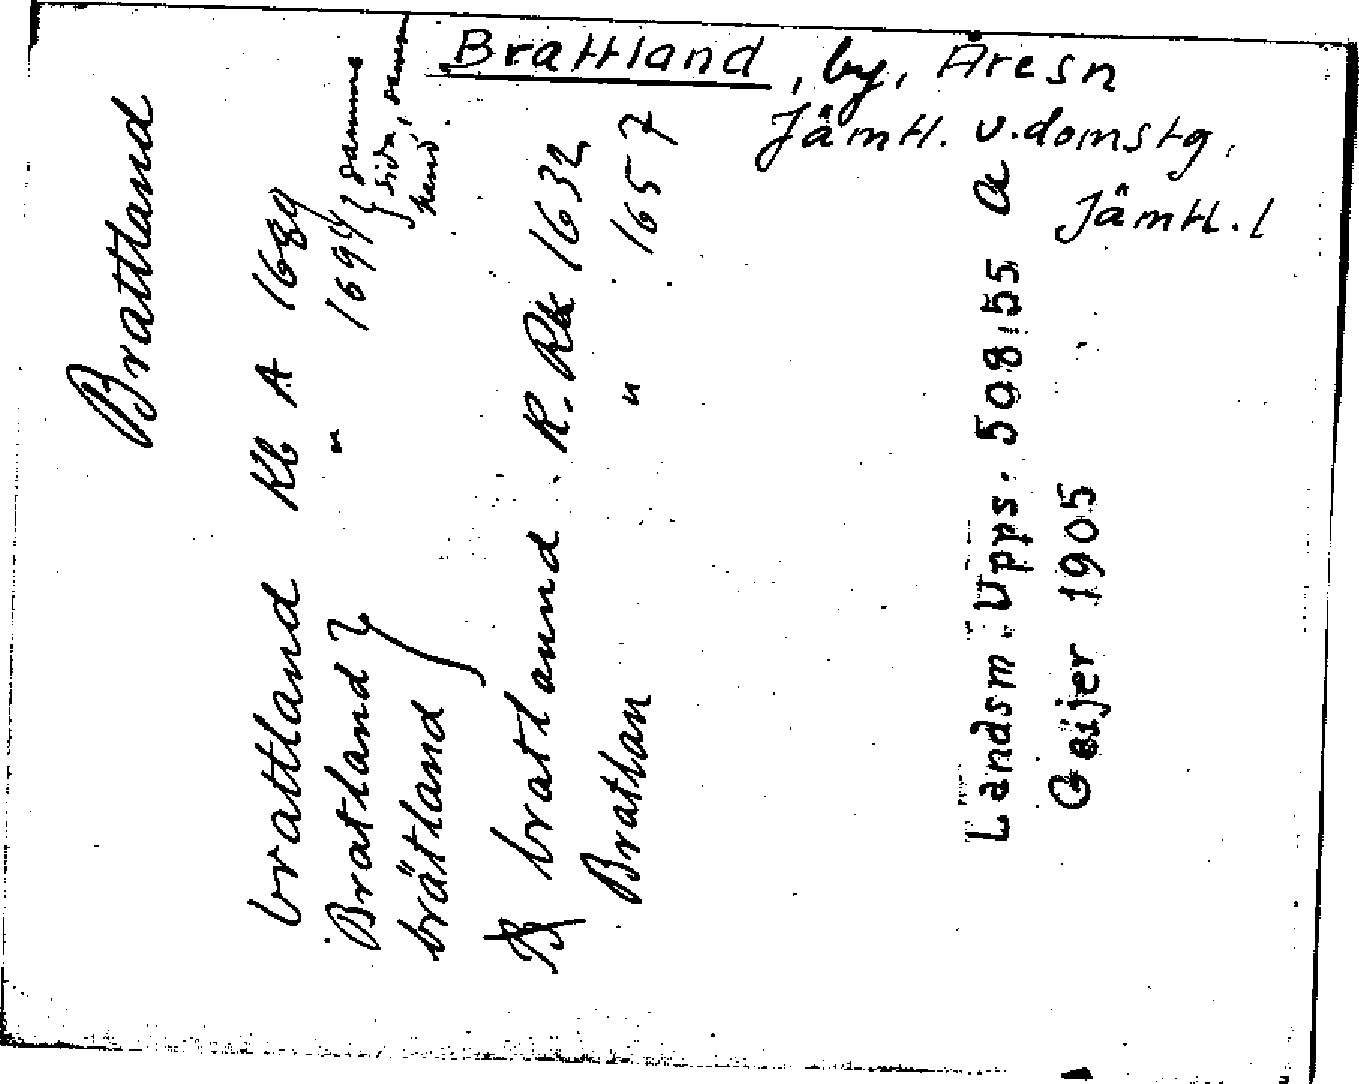 Brattland, by, Åresn
Jämtl. v. domstg,
Jämtl. l
Brattland
brattland Kb A 1689
Bratland } " 1694 } samma sida, samma hand.
brätland
bratland. R. Rk 1632
Brathan " 1657
Landsm. Upps. 508:55 a
Geijer 1905